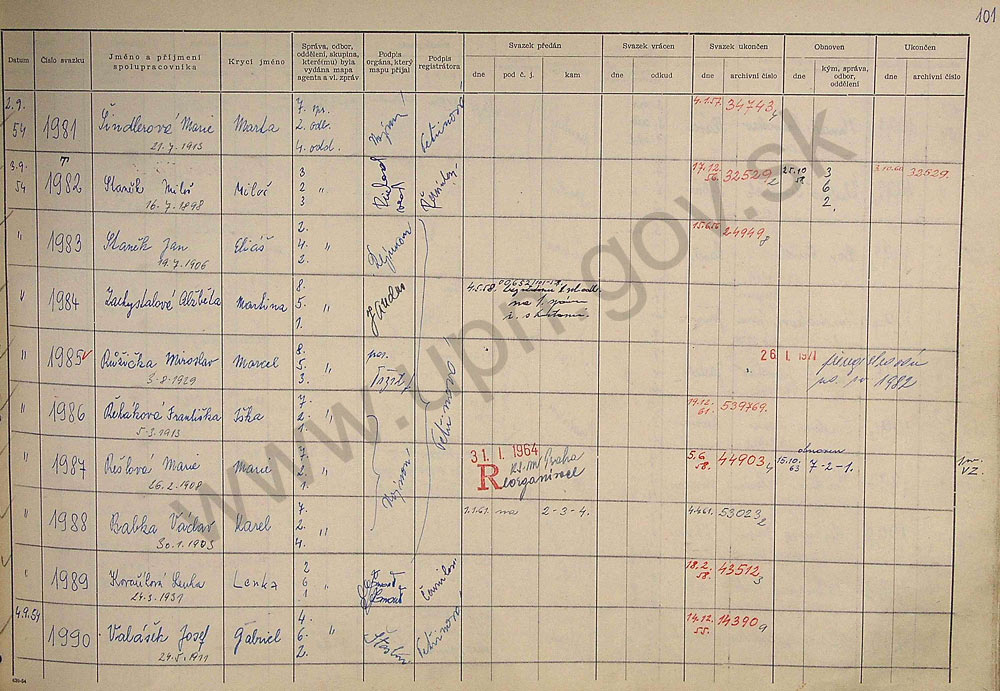 101
Datum
Číslo svazku
Jméno a příjmení
spolupracovníka
Krycí jméno
Správa, odbor,
oddělení, skupina,
které(mu) byla
vydána mapa
agenta a vl. zpráv
Podpis
orgána, který
mapu přijal
Podpis
registrátora
Svazek předán
dne
pod č. j.
kam
Svazek vrácen
dne
odkud
Svazek ukončen
dne
archivní číslo
Obnoven
dne
kým, správa,
odbor,
oddělení
Ukončen
dne
archivní číslo
2.9.
54
1981
Šindlerová Marie
21.7.1913
Marta
7. spr.
2. odb.
4. odd.
4.1.57.
34743
4
3.9.
54
1982
Staněk Miloš
16.7.1898
Miloš
3
2 "
3
17.12.
56.
32529
2
25.10
58.
3
6
2.
3.10.60
32529.
"
1983
Staněk Jan
19.7.1906
Eliáš
2.
4. "
2.
15.6.56
24949
8
"
1984
Zachystalová Alžběta
Martina
8.
5. "
1.
4.5.58.
na 1. správ
"
1985
Růžička Miroslav
3.8.1929
Marcel
8.
5. "
3.
26. I. 1971
1982
"
1986
Řeháková Františka
5.3.1913
Iška
7.
2. "
1.
19.12.
61.
539769.
"
1987
Rešlová Marie
26.2.1908
Marie
7.
2. "
1.
31. I. 1964
KS MV Praha
Reorganisace
5.6
58.
44903
4
15.10.
63
obnoven
7-2-1.
VZ.
"
1988
Babka Václav
30.1.1903
Karel
7.
2. "
4.
1.1.61.
na
2-3-4.
4.4.61.
53023
2
"
1989
Kovaříková Lenka
24.3.1931
Lenka
2
6 "
1
18.2.
58.
43512
3
4.9.54
1990
Valášek Josef
24.5.1911
Gabriel
4.
6. "
2.
Šťastný
14.12.
55.
14390
9
www.upn.gov.sk